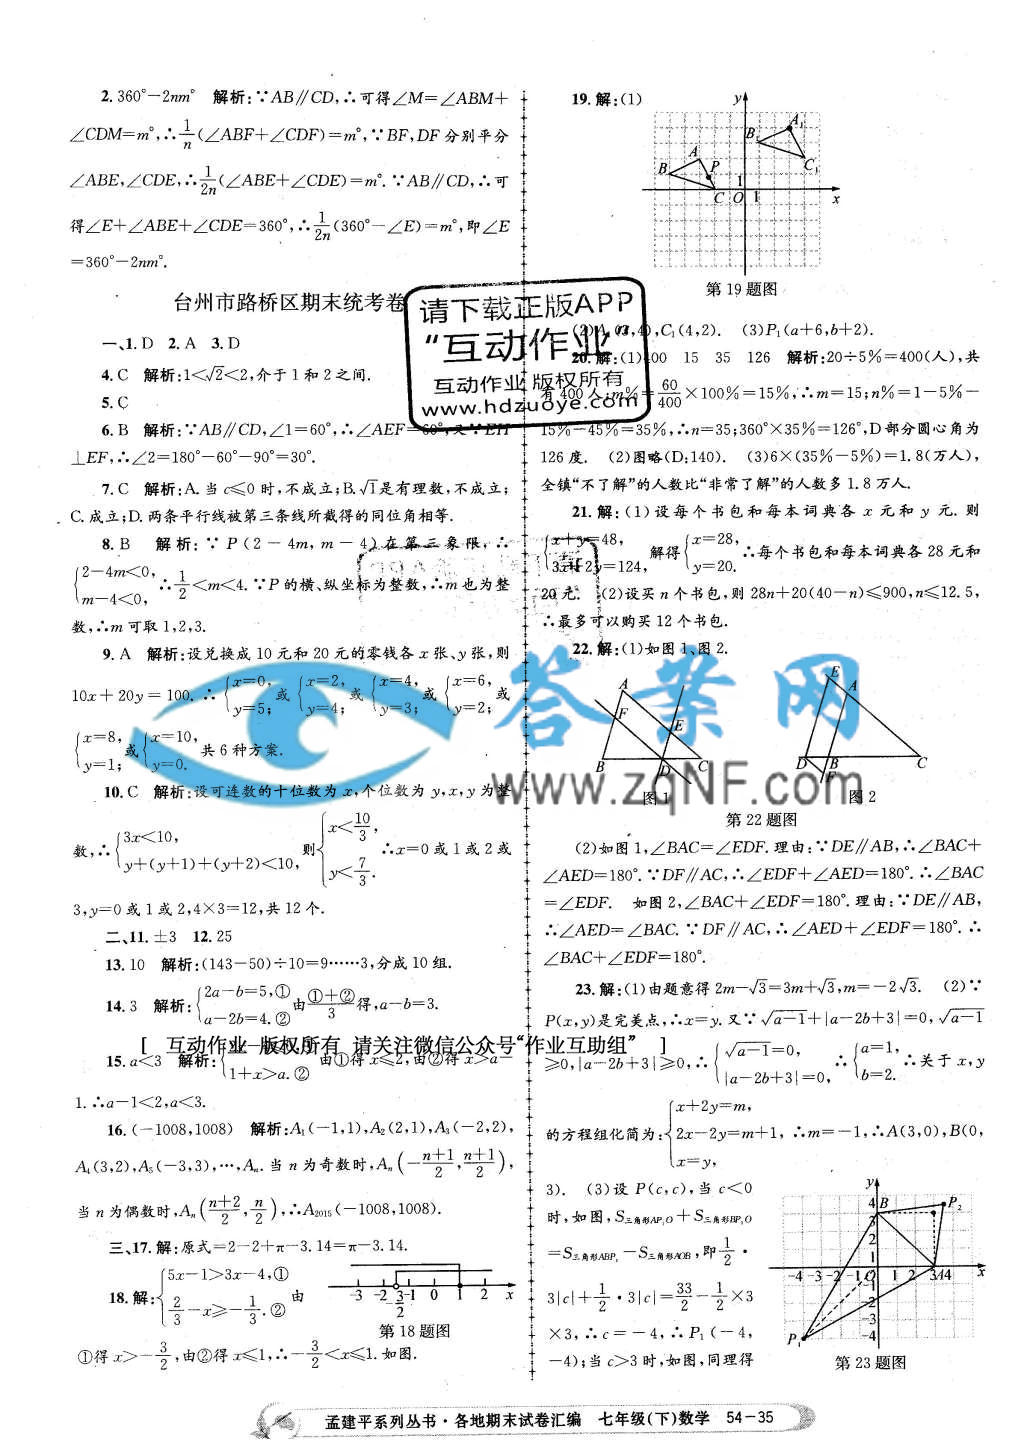 2. 360°-2nm° 解析:∵AB∥CD,∴可得∠M=∠ABM+
∠CDM=m°,∴1/n(∠ABF+∠CDF)=m°,∵BF,DF分别平分
∠ABE,∠CDE,∴1/2n(∠ABE+∠CDE)=m°.∵AB∥CD,∴可
得∠E+∠ABE+∠CDE=360°,∴1/2n(360°-∠E)=m°,即∠E
=360°-2nm°.
台州市路桥区期末统考卷
一、1. D 2. A 3. D
4. C 解析:1<√2<2,介于1和2之间.
5. C
6. B 解析:∵AB∥CD,∠1=60°,∴∠AEF=60°,又∵EH
⊥EF,∴∠2=180°-60°-90°=30°.
7. C 解析:A.当c≤0时,不成立;B.√1是有理数,不成立;
C.成立;D.两条平行线被第三条线所截得的同位角相等.
8. B 解析:∵P(2-4m,m-4)在第三象限,∴
{2-4m<0, m-4<0, ∴1/2<m<4.∵P的横、纵坐标为整数,∴m也为整
数,∴m可取1,2,3.
9. A 解析:设兑换成10元和20元的零钱各x张、y张,则
10x+20y=100.∴{x=0, y=5;或{x=2, y=4;或{x=4, y=3;或{x=6, y=2;或
{x=8, y=1;或{x=10, y=0.共6种方案.
10. C 解析:设可连数的十位数为x,个位数为y,x,y为整
数,∴{3x<10, y+(y+1)+(y+2)<10,则{x<10/3, y<7/3.∴x=0或1或2或
3,y=0或1或2,4×3=12,共12个.
二、11. ±3 12. 25
13. 10 解析:(143-50)÷10=9……3,分成10组.
14. 3 解析:{2a-b=5,① a-2b=4.②由(①+②)/3得,a-b=3.
[ 互动作业 版权所有 请关注微信公众号“作业互助组” ]
15. a<3 解析:1+x>a.②由①得x≤2,由②得x>a-
1.∴a-1<2,a<3.
16. (-1008,1008) 解析:A₁(-1,1),A₂(2,1),A₃(-2,2),
A₄(3,2),A₅(-3,3),…,Aₙ.当n为奇数时,Aₙ(-(n+1)/2,(n+1)/2),
当n为偶数时,Aₙ((n+2)/2,n/2),∴A₂₀₁₅(-1008,1008).
三、17. 解:原式=2-2+π-3.14=π-3.14.
18. 解:{5x-1>3x-4,① 2/3-x≥-1/3.②由
-3 -2 -3/2 -1 0 1 2 x
第18题图
①得x>-3/2,由②得x≤1,∴-3/2<x≤1.如图.
19. 解:(1)
y A₁ B₁ C₁ A B P C O 1 1 x
第19题图
(2)A₁(3,4),C₁(4,2). (3)P₁(a+6,b+2).
20. 解:(1)400 15 35 126 解析:20÷5%=400(人),共
有400人;m%=60/400×100%=15%,∴m=15;n%=1-5%-
15%-45%=35%,∴n=35;360°×35%=126°,D部分圆心角为
126度. (2)图略(D:140). (3)6×(35%-5%)=1.8(万人),
全镇“不了解”的人数比“非常了解”的人数多1.8万人.
21. 解:(1)设每个书包和每本词典各x元和y元.则
{x+y=48, 3x+2y=124,解得{x=28, y=20.∴每个书包和每本词典各28元和
20元. (2)设买n个书包,则28n+20(40-n)≤900,n≤12.5,
∴最多可以购买12个书包.
22. 解:(1)如图1、图2.
A F E B D C
图1
E A D B F C
图2
第22题图
(2)如图1,∠BAC=∠EDF.理由:∵DE∥AB,∴∠BAC+
∠AED=180°.∵DF∥AC,∴∠EDF+∠AED=180°.∴∠BAC
=∠EDF. 如图2,∠BAC+∠EDF=180°.理由:∵DE∥AB,
∴∠AED=∠BAC.∵DF∥AC,∴∠AED+∠EDF=180°.∴
∠BAC+∠EDF=180°.
23. 解:(1)由题意得2m-√3=3m+√3,m=-2√3. (2)∵
P(x,y)是完美点,∴x=y.又∵√(a-1)+|a-2b+3|=0,√(a-1)
≥0,|a-2b+3|≥0,∴{√(a-1)=0, |a-2b+3|=0,∴{a=1, b=2.∴关于x,y
的方程组化简为:{x+2y=m, 2x-2y=m+1, x=y,∴m=-1,∴A(3,0),B(0,
3). (3)设P(c,c),当c<0
时,如图,S三角形AP₁O+S三角形BP₁O
=S三角形ABP₁-S三角形AOB,即1/2·
3|c|+1/2·3|c|=33/2-1/2×3
×3,∴c=-4,∴P₁(-4,
-4);当c>3时,如图,同理得
y 4 B P₂ 3 2 1 -4 -3 -2 -1 O 1 2 3 A 4 x -1 -2 -3 -4 P₁
第23题图
请下载正版APP
“互动作业”
互动作业 版权所有
www.hdzuoye.com
答案网
www.zqNF.com
孟建平系列丛书·各地期末试卷汇编 七年级(下)数学 54-35